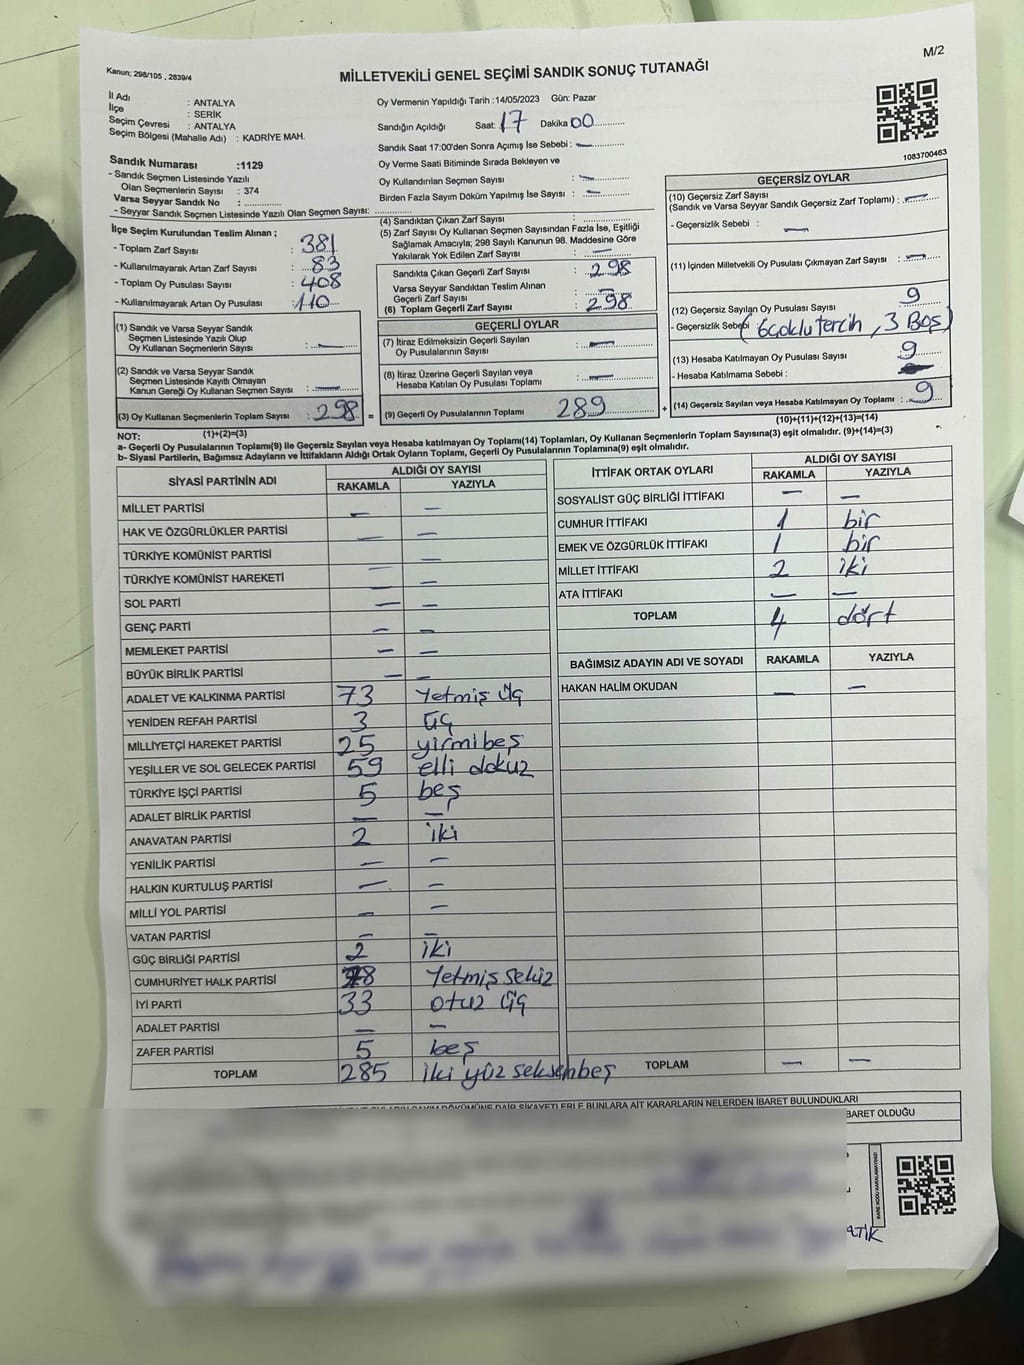 M/2
Kanun; 298/105 , 2839/4
MİLLETVEKİLİ GENEL SEÇİMİ SANDIK SONUÇ TUTANAĞI
İl Adı : ANTALYA
İlçe : SERİK
Seçim Çevresi : ANTALYA
Seçim Bölgesi (Mahalle Adı) : KADRİYE MAH.
Sandık Numarası :1129
- Sandık Seçmen Listesinde Yazılı
Olan Seçmenlerin Sayısı : 374
Varsa Seyyar Sandık No :
- Seyyar Sandık Seçmen Listesinde Yazılı Olan Seçmen Sayısı:
Oy Vermenin Yapıldığı Tarih :14/05/2023 Gün: Pazar
Sandığın Açıldığı Saat: 17 Dakika 00
Sandık Saat 17:00'den Sonra Açımış İse Sebebi : —
Oy Verme Saati Bitiminde Sırada Bekleyen ve
Oy Kullandırılan Seçmen Sayısı : —
Birden Fazla Sayım Döküm Yapılmış İse Sayısı : —
1083700463
İlçe Seçim Kurulundan Teslim Alınan ;
- Toplam Zarf Sayısı : 381
- Kullanılmayarak Artan Zarf Sayısı : 83
- Toplam Oy Pusulası Sayısı : 408
- Kullanılmayarak Artan Oy Pusulası : 110
(1) Sandık ve Varsa Seyyar Sandık
Seçmen Listesinde Yazılı Olup
Oy Kullanan Seçmenlerin Sayısı : —
(2) Sandık ve Varsa Seyyar Sandık
Seçmen Listesinde Kayıtlı Olmayan
Kanun Gereği Oy Kullanan Seçmen Sayısı : —
(3) Oy Kullanan Seçmenlerin Toplam Sayısı : 298 =
(1)+(2)=(3)
(4) Sandıktan Çıkan Zarf Sayısı :
(5) Zarf Sayısı Oy Kullanan Seçmen Sayısından Fazla İse, Eşitliği
Sağlamak Amacıyla; 298 Sayılı Kanunun 98. Maddesine Göre
Yakılarak Yok Edilen Zarf Sayısı : —
Sandıkta Çıkan Geçerli Zarf Sayısı : 298
Varsa Seyyar Sandıktan Teslim Alınan
Geçerli Zarf Sayısı : —
(6) Toplam Geçerli Zarf Sayısı : 298
GEÇERLİ OYLAR
(7) İtiraz Edilmeksizin Geçerli Sayılan
Oy Pusulalarının Sayısı : —
(8) İtiraz Üzerine Geçerli Sayılan veya
Hesaba Katılan Oy Pusulası Toplamı : —
(9) Geçerli Oy Pusulalarının Toplamı 289 +
GEÇERSİZ OYLAR
(10) Geçersiz Zarf Sayısı
(Sandık ve Varsa Seyyar Sandık Geçersiz Zarf Toplamı) : —
- Geçersizlik Sebebi : —
(11) İçinden Milletvekili Oy Pusulası Çıkmayan Zarf Sayısı : —
(12) Geçersiz Sayılan Oy Pusulası Sayısı 9
- Geçersizlik Sebebi (6 çoklu tercih , 3 Boş)
(13) Hesaba Katılmayan Oy Pusulası Sayısı : 9
- Hesaba Katılmama Sebebi :
(14) Geçersiz Sayılan veya Hesaba Katılmayan Oy Toplamı : 9
(10)+(11)+(12)+(13)=(14)
NOT:
a- Geçerli Oy Pusulalarının Toplamı(9) ile Geçersiz Sayılan veya Hesaba katılmayan Oy Toplamı(14) Toplamları, Oy Kullanan Seçmenlerin Toplam Sayısına(3) eşit olmalıdır. (9)+(14)=(3)
b- Siyasi Partilerin, Bağımsız Adayların ve İttifakların Aldığı Ortak Oyların Toplamı, Geçerli Oy Pusulalarının Toplamına(9) eşit olmalıdır.
SİYASİ PARTİNİN ADI ALDIĞI OY SAYISI
RAKAMLA YAZIYLA
MİLLET PARTİSİ — —
HAK VE ÖZGÜRLÜKLER PARTİSİ — —
TÜRKİYE KOMÜNİST PARTİSİ — —
TÜRKİYE KOMÜNİST HAREKETİ — —
SOL PARTİ — —
GENÇ PARTİ — —
MEMLEKET PARTİSİ — —
BÜYÜK BİRLİK PARTİSİ — —
ADALET VE KALKINMA PARTİSİ 73 Yetmiş Üç
YENİDEN REFAH PARTİSİ 3 Üç
MİLLİYETÇİ HAREKET PARTİSİ 25 yirmibeş
YEŞİLLER VE SOL GELECEK PARTİSİ 59 elli dokuz
TÜRKİYE İŞÇİ PARTİSİ 5 beş
ADALET BİRLİK PARTİSİ — —
ANAVATAN PARTİSİ 2 iki
YENİLİK PARTİSİ — —
HALKIN KURTULUŞ PARTİSİ — —
MİLLİ YOL PARTİSİ — —
VATAN PARTİSİ — —
GÜÇ BİRLİĞİ PARTİSİ 2 iki
CUMHURİYET HALK PARTİSİ 78 Yetmiş sekiz
İYİ PARTİ 33 otuz üç
ADALET PARTİSİ — —
ZAFER PARTİSİ 5 beş
TOPLAM 285 iki yüz seksenbeş
İTTİFAK ORTAK OYLARI ALDIĞI OY SAYISI
RAKAMLA YAZIYLA
SOSYALİST GÜÇ BİRLİĞİ İTTİFAKI — —
CUMHUR İTTİFAKI 1 bir
EMEK VE ÖZGÜRLÜK İTTİFAKI 1 bir
MİLLET İTTİFAKI 2 iki
ATA İTTİFAKI — —
TOPLAM 4 dört
BAĞIMSIZ ADAYIN ADI VE SOYADI RAKAMLA YAZIYLA
HAKAN HALİM OKUDAN — —
TOPLAM — —
DÖKÜMÜNE DAİR ŞİKAYETLERLE BUNLARA AİT KARARLARIN NELERDEN İBARET BULUNDUKLARI
BARET OLDUĞU